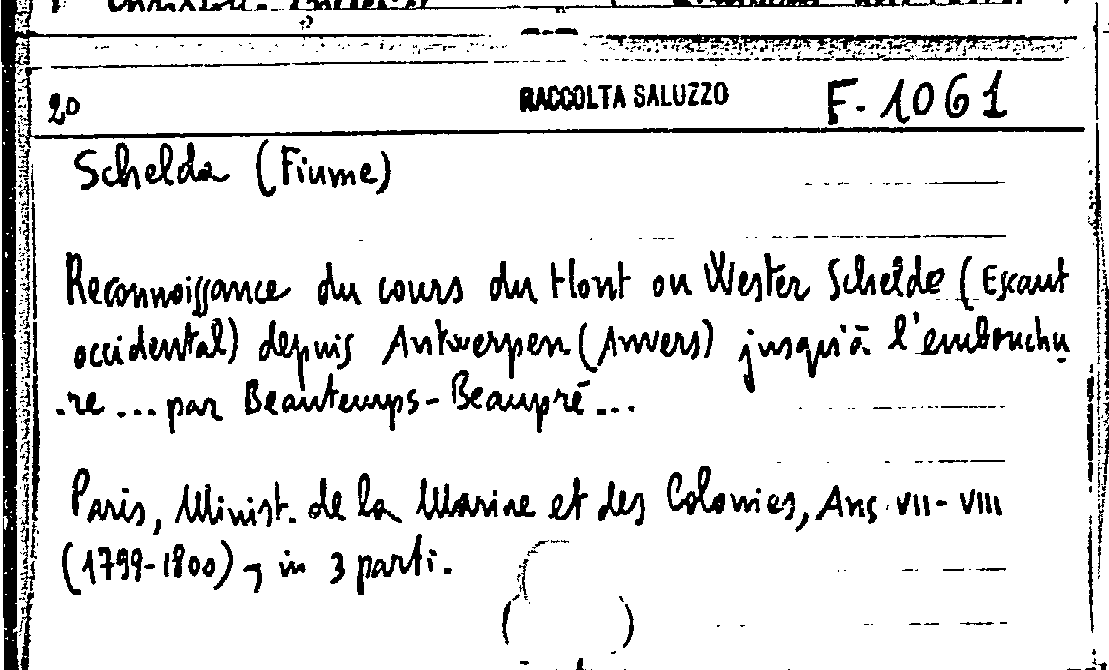 20 RACCOLTA SALUZZO F-1061
Schelda (Fiume)
Reconnoissance du cours du Hont ou Wester Schelde (Escaut
occidental) depuis Antwerpen (Anvers) jusqu'à l'embouchu
-re ... par Beautemps-Beaupré ...
Paris, Minist. de la Marine et des Colonies, Ans VII-VIII
(1799-1800), in 3 parti.